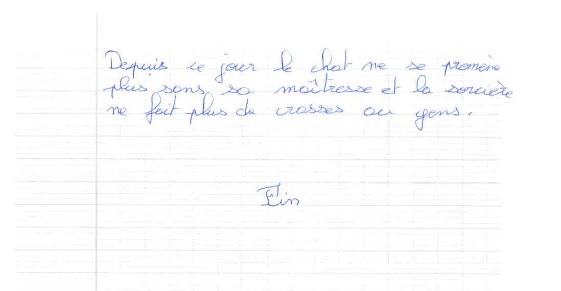 Depuis ce jour le chat ne se promène
plus sans sa maîtresse et la sorcière
ne fait plus de crasses au gens.
Fin